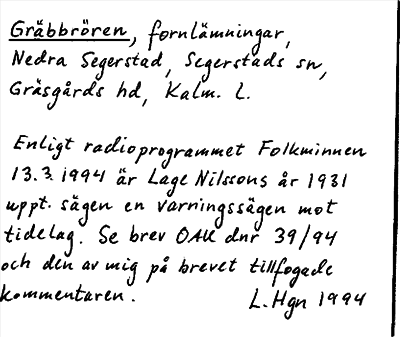 Gräbbrören, fornlämningar,
Nedra Segerstad, Segerstads sn,
Gräsgårds hd, Kalm. L.
Enligt radioprogrammet Folkminnen
13.3.1994 är Lage Nilssons år 1931
uppt. sägen en varningssägen mot
tidelag. Se brev OAU dnr 39/94
och den av mig på brevet tillfogade
kommentaren. L. Hgn 1994